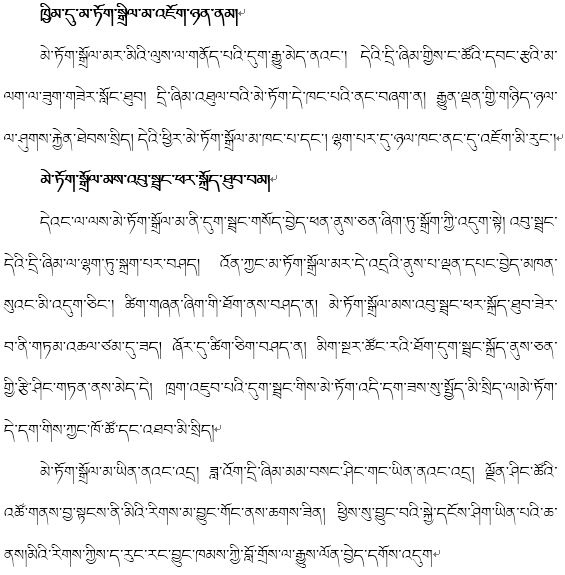 ཁྱིམ་དུ་མ་ཏོག་སྒྲིལ་མ་འཇོག་ཉན་ནམ།
མེ་ཏོག་སྒྲོལ་མར་མིའི་ལུས་ལ་གནོད་པའི་དུག་རྒྱུ་མེད་ནའང་། དེའི་དྲི་ཞིམ་གྱིས་ང་ཚོའི་དབང་རྩའི་མ་
ལག་ལ་ཟུག་གཟེར་སློང་ཐུབ། དྲི་ཞིམ་འཐུལ་བའི་མེ་ཏོག་དེ་ཁང་པའི་ནང་བཞག་ན། རྒྱུན་ལྡན་གྱི་གཉིད་ཉལ་
ལ་ཤུགས་རྐྱེན་ཐེབས་སྲིད། དེའི་ཕྱིར་མེ་ཏོག་སྒྲོལ་མ་ཁང་པ་དང་། ལྷག་པར་དུ་ཉལ་ཁང་ནང་དུ་འཇོག་མི་རུང་།
མེ་ཏོག་སྒྲོལ་མས་འབུ་སྦྲང་ཕར་སྐྲོད་ཐུབ་བམ།
དེའང་ལ་ལས་མེ་ཏོག་སྒྲོལ་མ་ནི་དུག་སྦྲང་གསོད་བྱེད་ཕན་ནུས་ཅན་ཞིག་ཏུ་སྒྲོག་ཀྱི་འདུག་སྟེ། འབུ་སྦྲང་
དེའི་དྲི་ཞིམ་ལ་ལྷག་ཏུ་སྐྲག་པར་བཤད། འོན་ཀྱང་མ་ཏོག་སྒྲོལ་མར་དེ་འདྲའི་ནུས་པ་ལྡན་དཔང་བྱེད་མཁན་
སུའང་མི་འདུག་ཅིང་། ཚིག་གཞན་ཞིག་གི་ཐོག་ནས་བཤད་ན། མེ་ཏོག་སྒྲོལ་མས་འབུ་སྦྲང་ཕར་སྐྲོད་ཐུབ་ཟེར་
བ་ནི་གཏམ་འཆལ་ཙམ་དུ་ཟད། ཞོར་དུ་ཚིག་ཅིག་བཤད་ན། མིག་སྔར་ཚོང་རའི་ཐོག་དུག་སྦྲང་སྐྲོད་ནུས་ཅན་
གྱི་རྩི་ཤིང་གཏན་ནས་མེད་དེ། ཁྲག་འཇུབ་པའི་དུག་སྦྲང་གིས་མེ་ཏོག་འདི་དག་ཟས་སུ་སྤྱོད་མི་སྲིད་ལ།མེ་ཏོག་
དེ་དག་གིས་ཀྱང་ཁོ་ཚོ་དང་འཐབ་མི་སྲིད།
མེ་ཏོག་སྒྲོལ་མ་ཡིན་ནའང་འདྲ། ཟླ་འོག་དྲི་ཞིམ་མམ་བསང་ཤིང་གང་ཡིན་ནའང་འདྲ། ལྗོན་ཤིང་ཚོའི་
འཚོ་གནས་བྱ་སྟངས་ནི་མིའི་རིགས་མ་བྱུང་གོང་ནས་ཆགས་ཟིན། ཕྱིས་སུ་བྱུང་བའི་སྐྱེ་དངོས་ཤིག་ཡིན་པའི་ཆ་
ནས།མིའི་རིགས་ཀྱིས་ད་རུང་རང་བྱུང་ཁམས་ཀྱི་བློ་གྲོས་ལ་རྒྱུས་ལོན་བྱེད་དགོས་འདུག